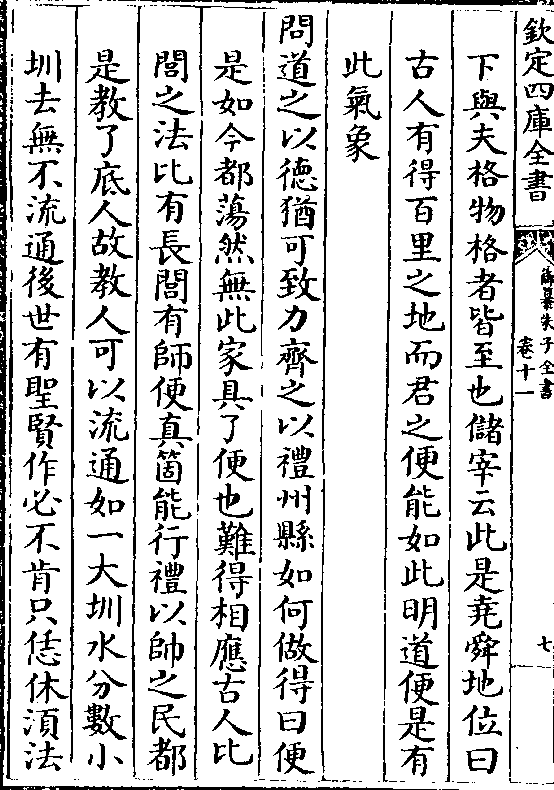 欽定四庫全書
御纂朱子全書
卷十一
七
下與夫格物格者皆至也儲宰云此是堯舜地位曰
古人有得百里之地而君之便能如此明道便是有
此氣象
問道之以德猶可致力齊之以禮州縣如何做得曰便
是如今都蕩然無此家具了便也難得相應古人比
閭之法比有長閭有師便真箇能行禮以帥之民都
是教了底人故教人可以流通如一大圳水分數小
圳去無不流通後世有聖賢作必不肯只恁休須法